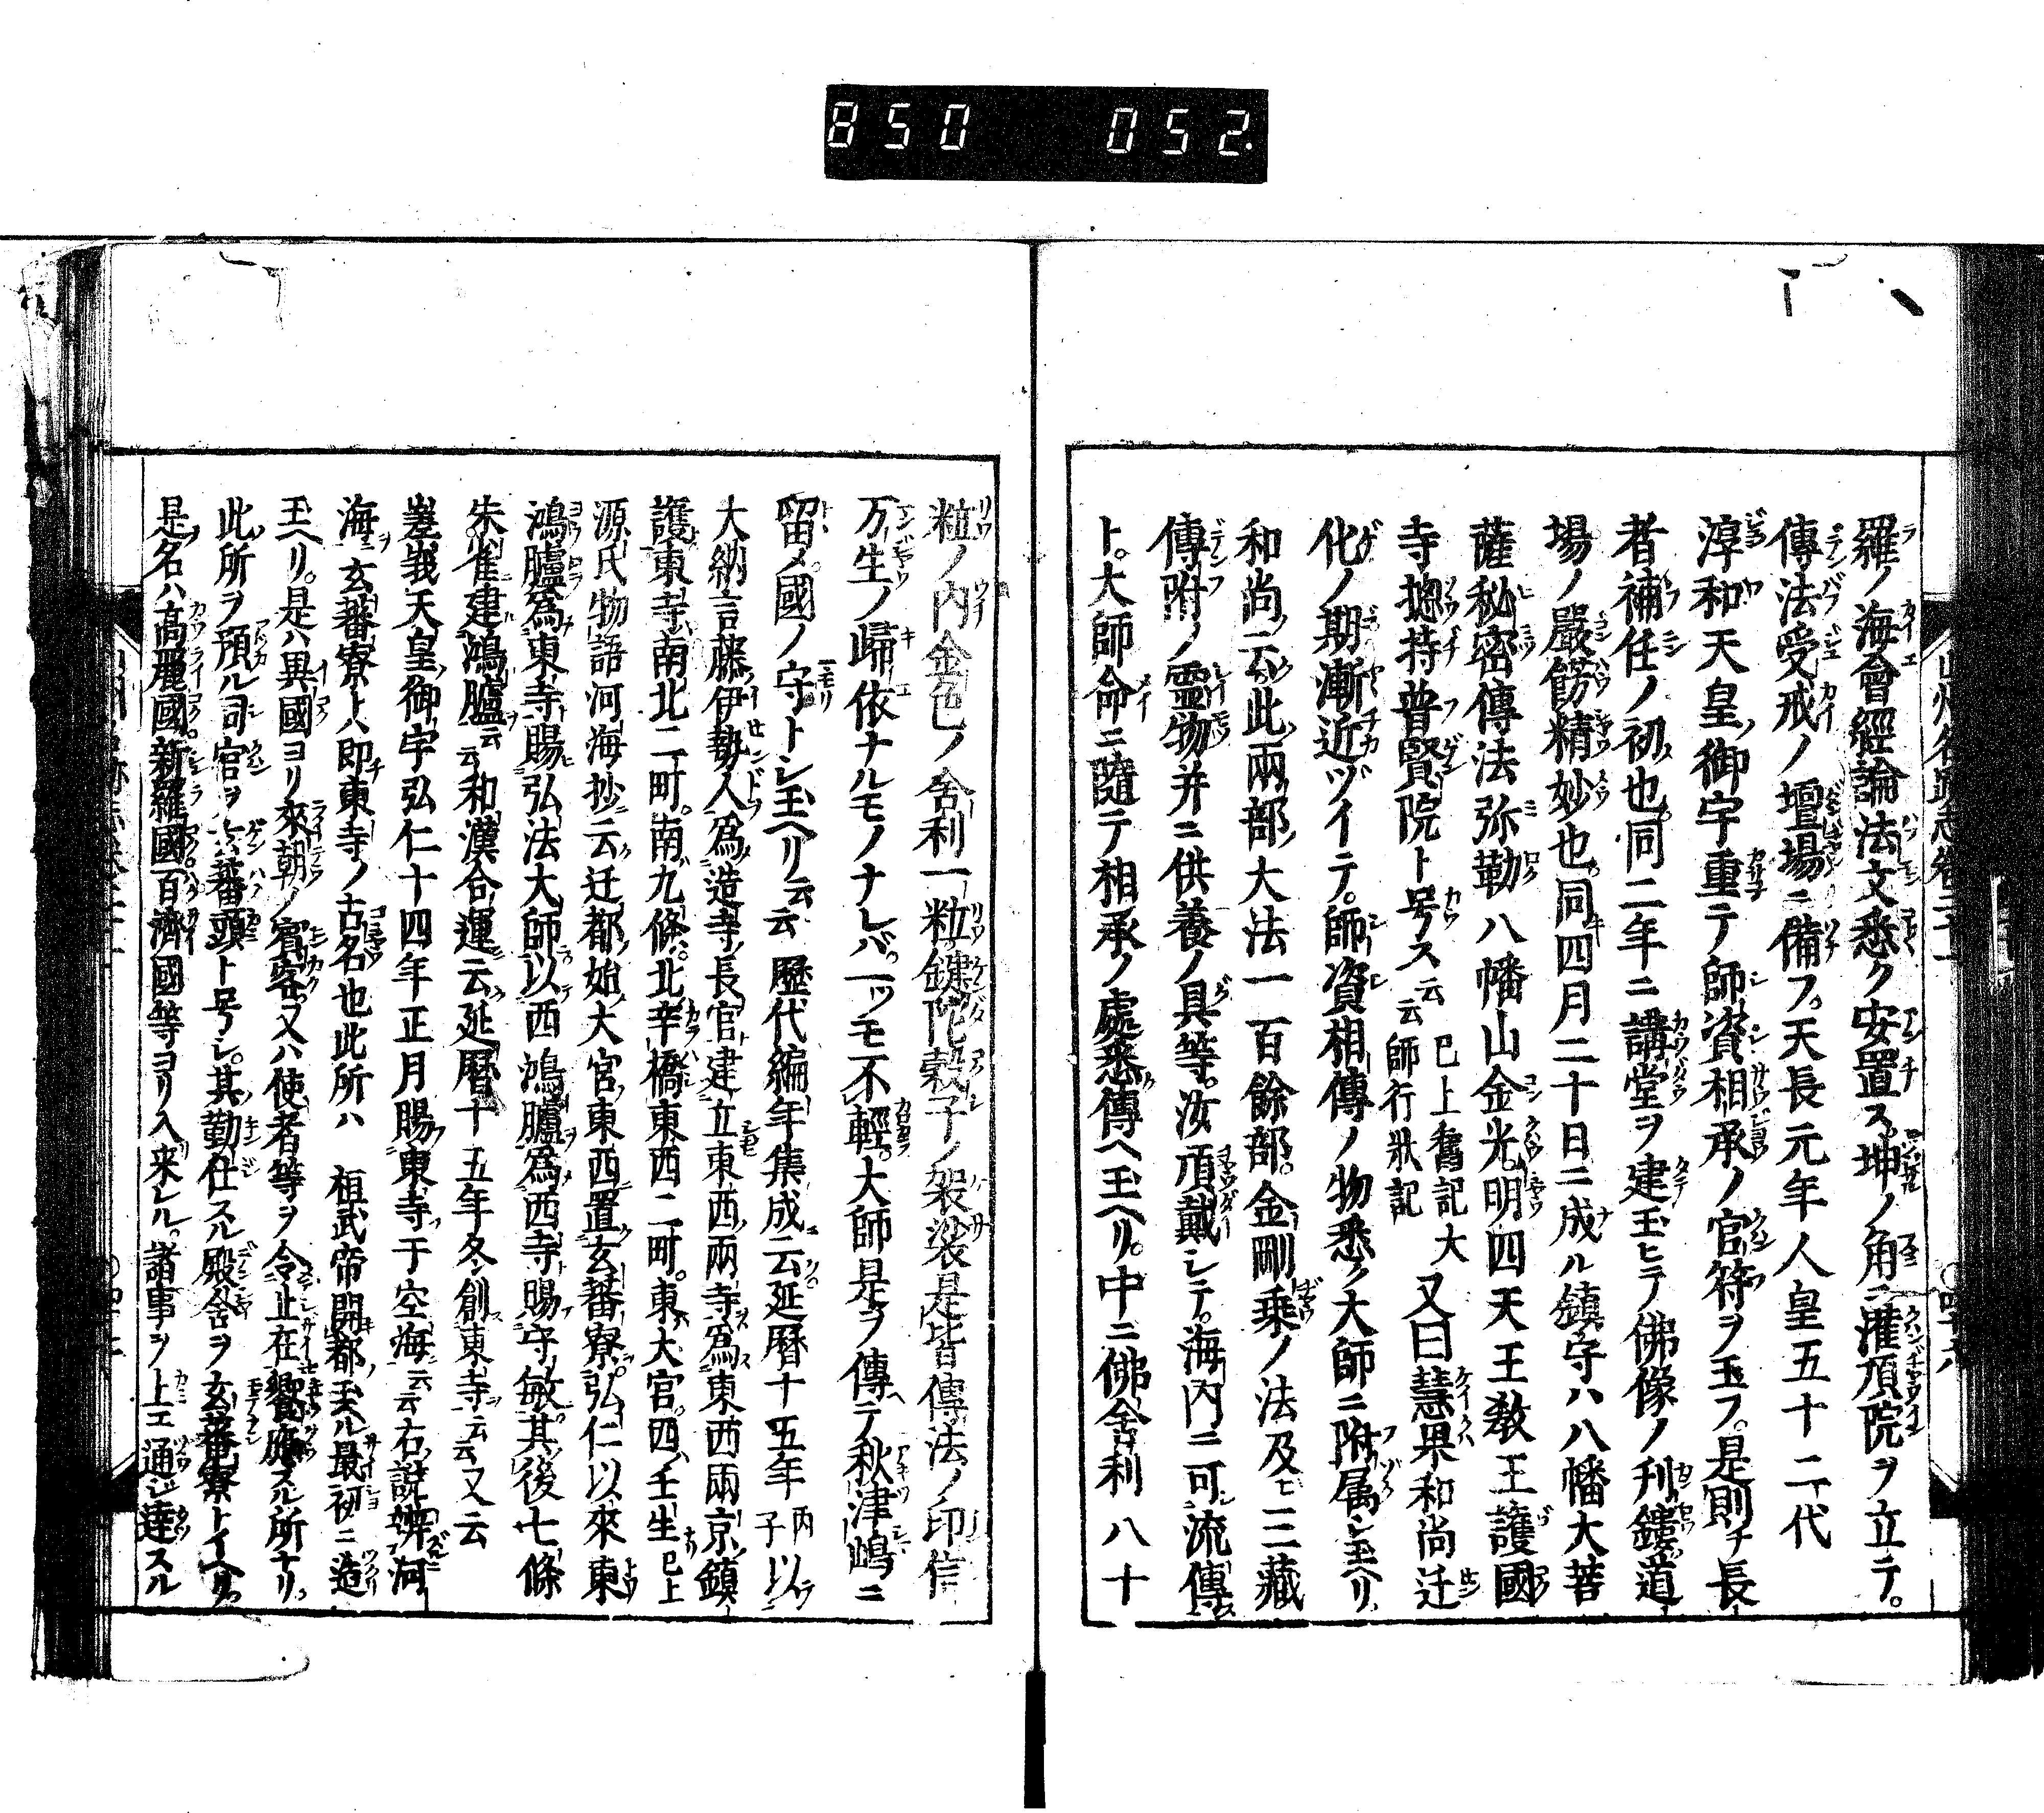 850 052.
羅ノ海會經論法文悉ク安置ス坤ノ角ニ灌頂院ヲ立テ。
傳法受戒ノ壇場ニ備フ。天長元年人皇五十二代
淳和天皇ノ御宇重テ師資相承ノ官符ヲ玉フ。是則チ長
者補任ノ初也同二年ニ講堂ヲ建玉ヒテ佛像ノ刋鏤道
場ノ嚴餝精妙也。同四月二十日ニ成ル鎮守ハ八幡大菩
薩秘密傳法弥勒八幡山金光明四天王教王護國
寺揔持普賢院ト号ス云云 已上舊記大師行狀記 又曰慧果和尚迁
化ノ期漸近ヅイテ。師資相傳ノ物悉ク大師ニ附属シ玉ヘリ。
和尚ノ云ク此ノ兩部ノ大法一百餘部。金剛乗ノ法及ヒ三藏
傳附ノ靈物并ニ供養ノ具等。汝頂戴シテ。海内ニ可流傳ス
ト。大師命ニ隨テ相承ノ處悉ク傳ヘ玉ヘリ。中ニ佛舍利八十
粒ノ内金色ノ舍利一粒健陀穀子ノ袈裟是皆傳法ノ印信
万生ノ歸依ナルモノナレバ。一ツモ不輕。大師是ヲ傳テ秋津嶋ニ
留メ。國ノ守トシ玉ヘリ云云 歷代編年集成云延暦十五年丙子以
大納言藤伊勢人爲造寺長官建立東西兩寺爲東西兩京鎮
護東寺南北二町。南九條。北辛橋東西二町。東大宮。西壬生已上
源氏物語河海抄ニ云迁都始大宮東西置玄蕃寮。弘仁以來東
鴻臚爲東寺賜弘法大師以西鴻臚爲西寺賜守敏其後七條
朱雀建鴻臚云云和漢合運云延暦十五年冬創東寺云云又云
嵯峨天皇御宇弘仁十四年正月賜東寺于空海云云右ノ説辨河
海ニ玄蕃寮トハ即チ東寺ノ古名也此所ハ 桓武帝開都玉ル最初ニ造
玉ヘリ。是ハ異國ヨリ來朝ノ賓客又ハ使者等ヲ令止在饗應スル所ナリ。
此所ヲ預ル司官ヲ玄蕃頭ト号シ。其勤仕スル殿舍ヲ玄蕃寮トイヘリ。
是名ハ高麗國新羅國百濟國等ヨリ入来レル。諸事ヲ上エ通ジ達スル